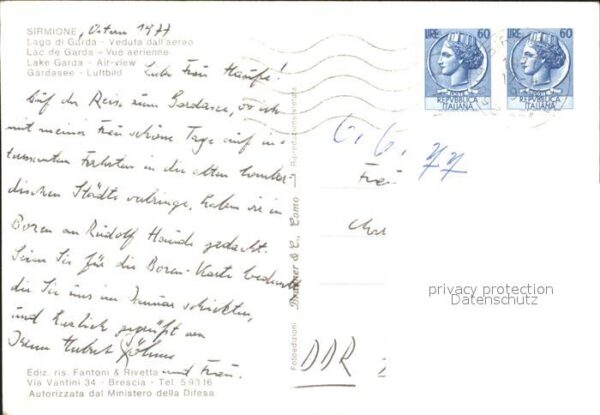 SIRMIONE, Ostern 1977
Lago di Garda - Veduta dall'aereo
Lac de Garda - Vue aérienne
Lake Garda - Air-view
Gardasee - Luftbild
Liebe Frau Haufe!
Auf der Reise zum Gardasee, wo ich
mit meiner Frau schöne Tage auf in-
teressanten Fahrten in die alten lombar-
dischen Städte verbringe, haben wir in
Bozen an Rudolf gedacht.
Seien Sie für die Bozen-Karte bedankt
die Sie uns im Januar schickten,
und herzlich gegrüßt von
Ihrem Hubert
und Frau.
Ediz. ris. Fantoni & Rivetta
Via Vantini 34 - Brescia - Tel. 59316
Autorizzata dal Ministero della Difesa
Fotoedizioni & C., Como
Riproduzione vietata
LIRE 60
REPVBBLICA
ITALIANA
LIRE 60
REPVBBLICA
ITALIANA
6. 6. 77
Frau
DDR
privacy protection
Datenschutz